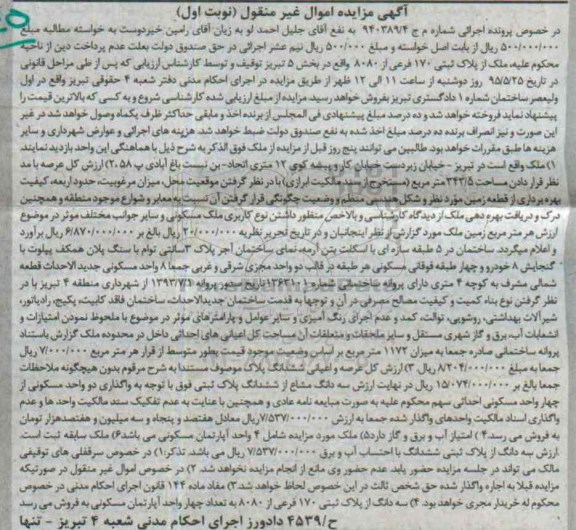 آگهی مزایده اموال غیر منقول (نوبت اول)
در خصوص پرونده اجرائی شماره م ج ۹۴۰۳۸۹/۴ به نفع آقای جلیل احمد لو به زیان آقای رامین خیردوست به خواسته مطالبه مبلغ
۵۰۰/۰۰۰/۰۰۰ ریال از بابت اصل خواسته و مبلغ ۵۰۰/۰۰۰ ریال نیم عشر اجرائی در حق صندوق دولت بعلت عدم پرداخت دین از ناحیه
محکوم علیه، ملک از پلاک ثبتی ۱۷۰ فرعی از ۸۰۸۰ واقع در بخش ۵ تبریز توقیف و توسط کارشناس ارزیابی که پس از طی مراحل قانونی
در تاریخ ۹۵/۵/۲۵ روز دوشنبه از ساعت ۱۱ الی ۱۲ ظهر از طریق مزایده در اجرای احکام مدنی دفتر شعبه ۴ حقوقی تبریز واقع در اول
ولیعصر ساختمان شماره ۱ دادگستری تبریز بفروش خواهد رسید. مزایده از مبلغ ارزیابی شده کارشناسی شروع و به کسی که بالاترین قیمت را
پیشنهاد نماید فروخته خواهد شد و ده درصد مبلغ پیشنهادی فی المجلس از برنده اخذ و مابقی حداکثر ظرف یکماه وصول خواهد شد در غیر
این صورت و نیز انصراف برنده ده درصد مبلغ اخذ شده به نفع صندوق دولت ضبط خواهد شد. هزینه های اجرائی و عوارض شهرداری و سایر
هزینه ها طبق مقررات خواهد بود. طالبین می توانند پنج روز قبل از مزایده از ملک فوق الذکر به شرح ذیل با هماهنگی این واحد بازدید نمایند.
۱) ملک واقع است در تبریز - خیابان زبردست خیابان کارو بیشه کوی ۱۲ متری اتحاد- بن بست باغ آبادی پ ۲،۵۸) ارزش کل عرصه با مد
نظر قرار دادن مساحت ۳۴۳/۵ متر مربع (مستخرج از سند مالکیت ابرازی) با در نظر گرفتن موقعیت محل، میزان مرغوبیت، حدود اربعه، کیفیت
بهره برداری از قطعه زمین مورد نظر و شکل هندسی منظم و وضعیت چگونگی قرار گرفتن آن نسبت به معابر و شوارع موجود منطقه و همچنین
درک و دریافت بهره دهی ملک از دیدگاه کارشناسی و بالاخص منظور داشتن نوع کاربری ملک مسکونی و سایر جوانب مختلف موثر در موضوع
ارزش هر متر مربع زمین ملک مورد گزارش از نظر اینجانبان و در تاریخ تحریر نظریه ۲۰/۰۰۰/۰۰۰ ریال بالغ بر ۶/۸۷۰/۰۰۰/۰۰۰ ریال برآورد
و اعلام میگردد. ساختمان در ۵ طبقه سازه ای با اسکلت بتن آرمه، نمای ساختمان آجر پلاک ۳ سانتی توام با سنگ پلان همکف پیلوت با
گنجایش ۸ خودرو و چهار طبقه فوقانی مسکونی هر طبقه در قالب دو واحد مجزی شرقی و غربی جمعا ۸ واحد مسکونی جدید الاحداث قطعه
شمالی مشرف به کوچه ۴ متری دارای پروانه ساختمانی شماره تاریخ صدور پروانه ۱۳۹۳/۷/۱ از شهرداری منطقه ۴ تبریز با در
نظر گرفتن نوع بناء کمیت و کیفیت مصالح مصرفی در آن و توجها به قدمت ساختمان جدیدالاحداث، ساختمان فاقد کابینت، پکیج، رادیاتور،
شیرآلات بهداشتی، روشویی، توالت، کمد و عدم اجرای رنگ آمیزی و سایر عوامل و پارامترهای موثر در موضوع با ملحوظ نمودن امتیازات و
انشعابات آب، برق و گاز شهری مستقل و سایر ملحقات و متعلقات آن مساحت کل اعیانی های احداثی داخل در محدوده ملک گزارش باستناد
پروانه ساختمانی صادره جمعا به میزان ۱۱۷۲ متر مربع بر اساس وضعیت موجود قیمت بطور متوسط از قرار هر متر مربع ۷/۰۰۰/۰۰۰ ریال
جمعا به مبلغ ۸/۲۰۴/۰۰۰/۰۰۰ ریال. ۳) ارزش کل عرصه و اعیانی ششدانگ پلاک موصوف مستندا به شرح مرقوم بدون هیچگونه ملاحظات
جمعا بالغ بر ۱۵/۰۷۴/۰۰۰/۰۰۰ ریال در نهایت ارزش سه دانگ مشاع از ششدانگ پلاک ثبتی فوق با توجه به واگذاری دو واحد مسکونی از
چهار واحد مسکونی احداثی سهم محکوم علیه به صورت مبایعه نامه عادی و همچنین با عنایت به عدم تفکیک سند مالکیت واحد ها و عدم
واگذاری اسناد مالکیت واحدهای واگذار شده جمعا به ارزش ۷/۵۳۷/۰۰۰/۰۰۰ ریال معادل هفتصد و پنجاه و سه میلیون و هفتصد هزار تومان
به فروش می رسد. ۴) امتیاز آب و برق و گاز دارد ۵) ملک مورد مزایده شامل ۴ واحد آپارتمان مسکونی می باشد ۶) ملک سابقه ثبت است.
ارزش سه دانگ از پلاک ثبتی ششدانگ با احتساب آب و برق ۷/۵۳۷/۰۰۰/۰۰۰ ریال می باشد. تذکر: ۱) در خصوص سرقفلی های توقیفی
مالک می تواند در جلسه مزایده حضور یابد. عدم حضور وی مانع از انجام مزایده نخواهد شد. ۲) در خصوص اموال غیر منقول در صورتیکه
مزایده قبلا به اجاره واگذار شده حق شخص ثالث در این خصوص لحاظ خواهد شد. ۳) مفاد ماده ۱۴۴ قانون اجرای احکام مدنی در خصوص
محکوم له خریدار مجری خواهد بود. ۴) سه دانگ از پلاک ثبتی ۱۷۰ فرعی از ۸۰۸۰ به تعداد چهار واحد آپارتمان مسکونی به فروش می رسد
ح/۴۵۳۹ دادورز اجرای احکام مدنی شعبه ۴ تبریز - تنها